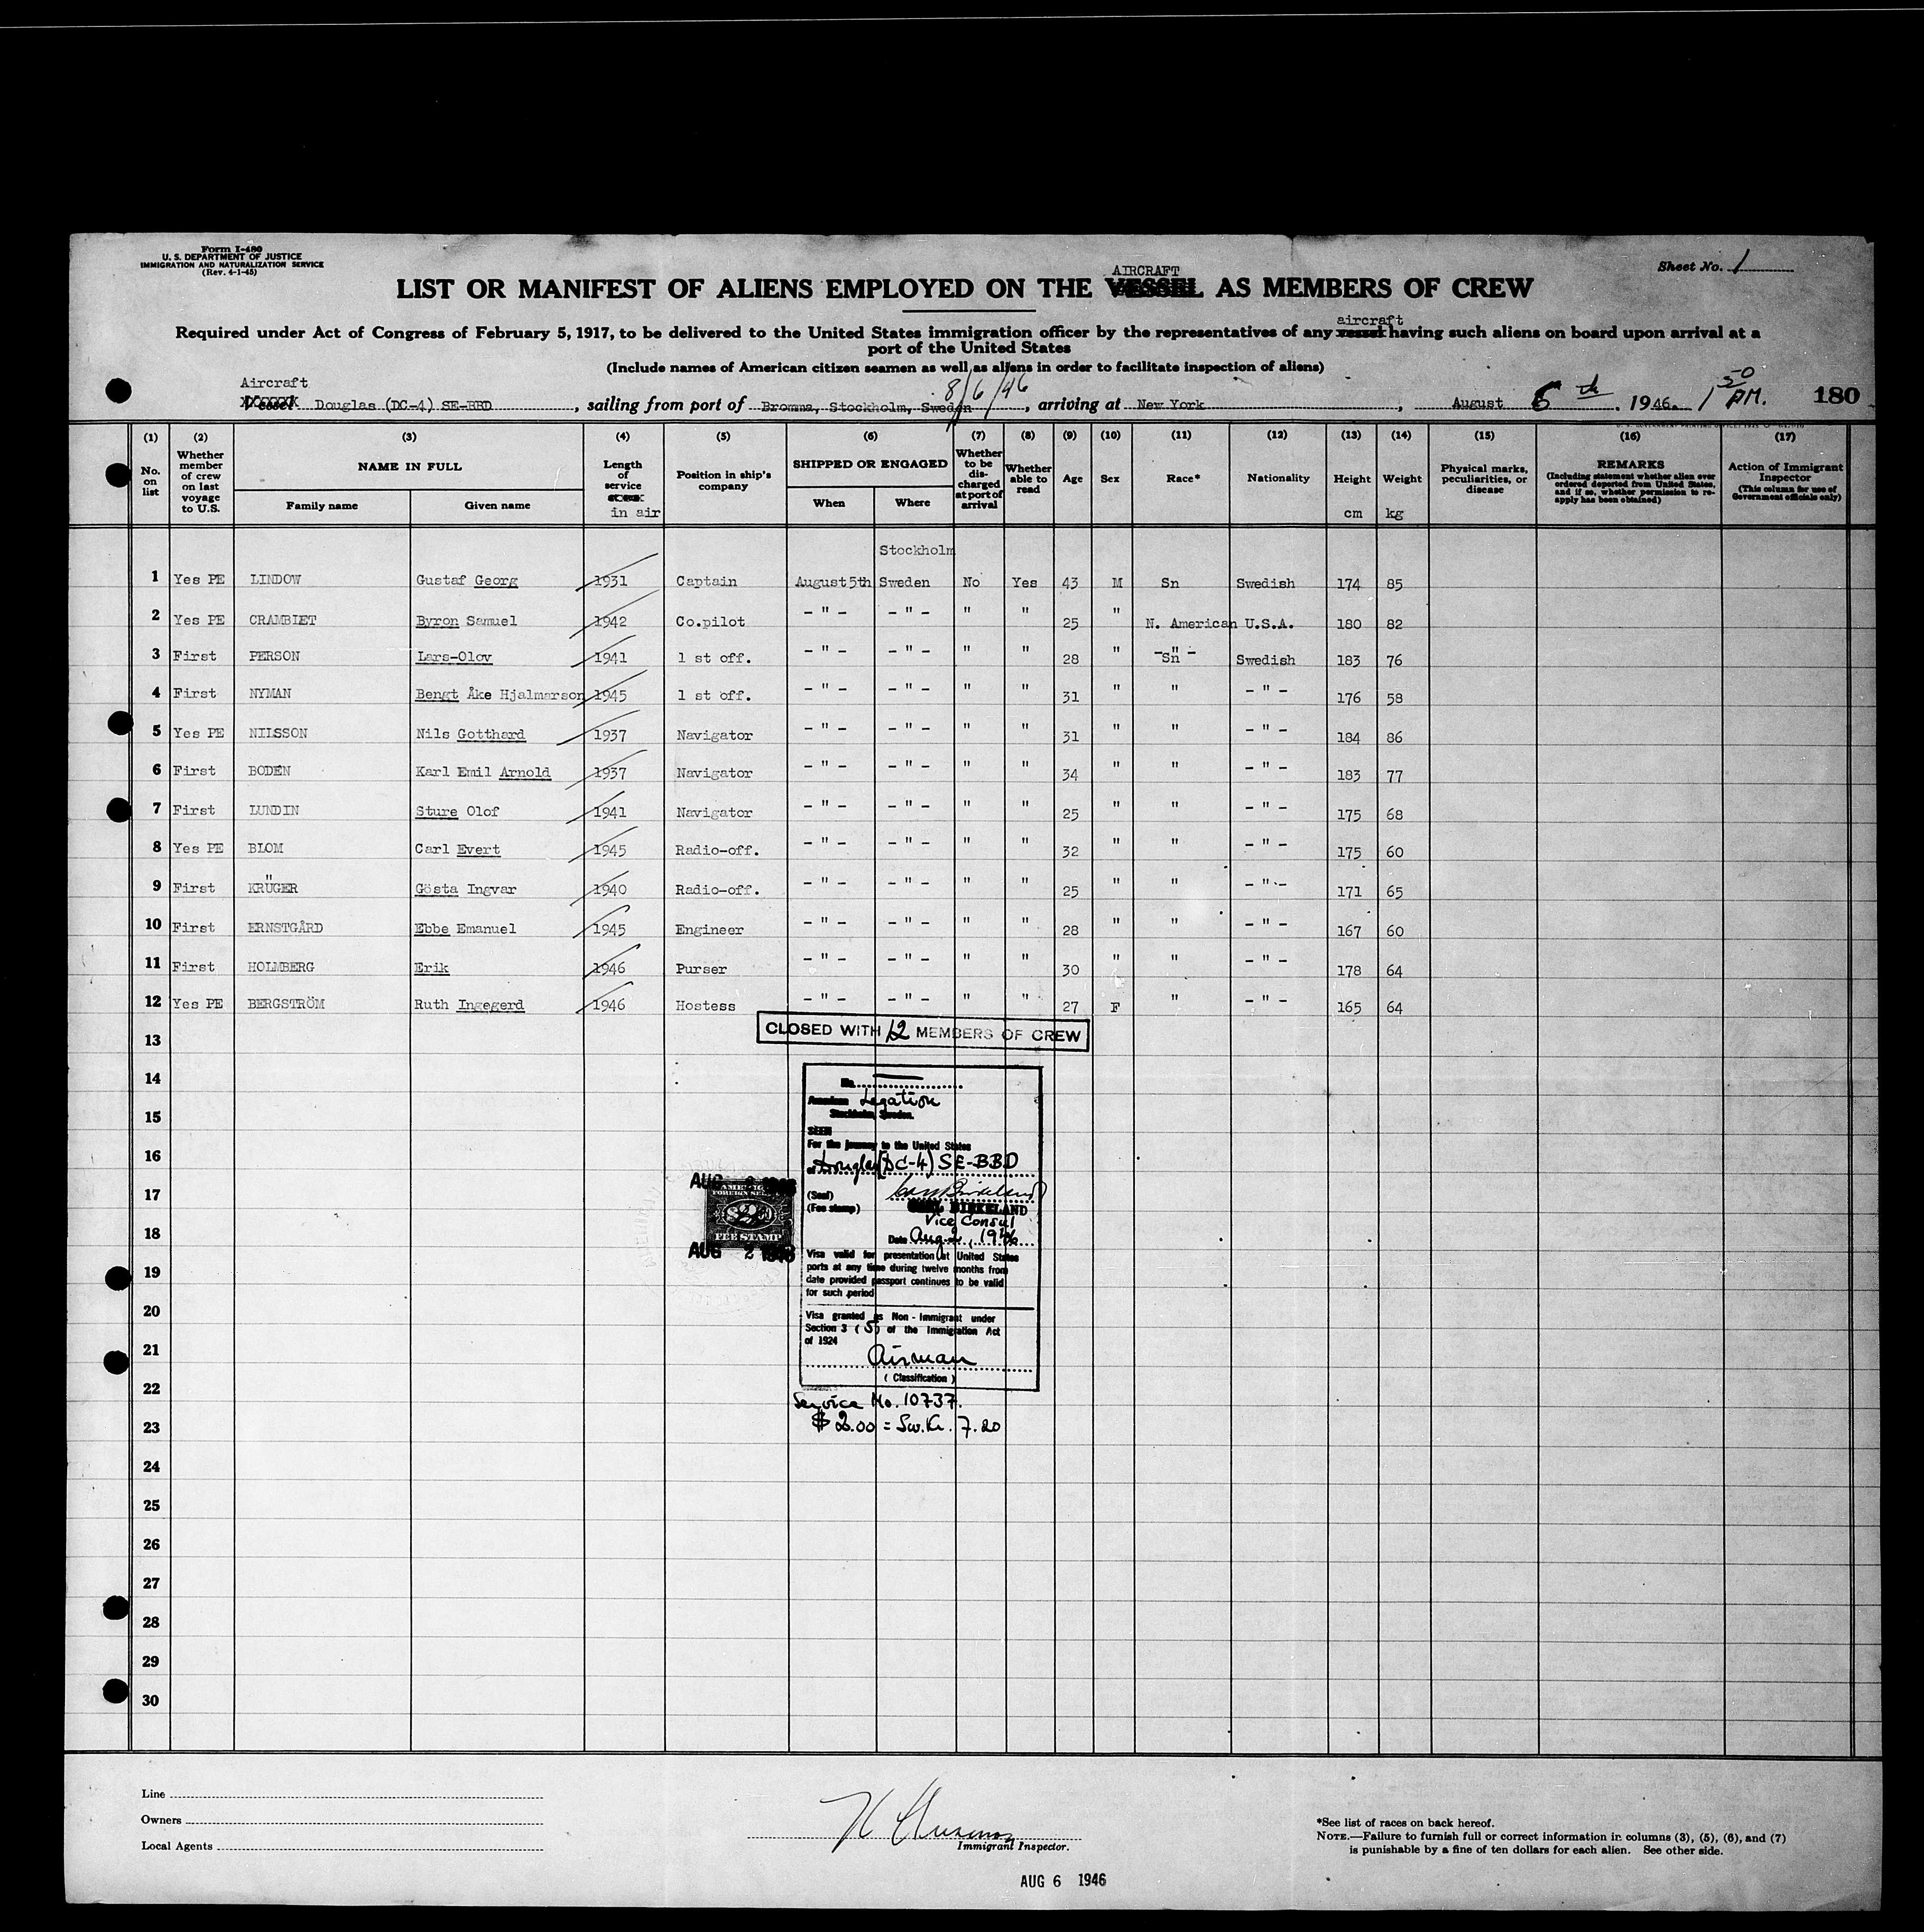 Form I-480
U. S. DEPARTMENT OF JUSTICE
IMMIGRATION AND NATURALIZATION SERVICE
(Rev. 4-1-45)
Sheet No. 1
AIRCRAFT
LIST OR MANIFEST OF ALIENS EMPLOYED ON THE VESSEL AS MEMBERS OF CREW
aircraft
Required under Act of Congress of February 5, 1917, to be delivered to the United States immigration officer by the representatives of any vessel having such aliens on board upon arrival at a
port of the United States
(Include names of American citizen seamen as well as aliens in order to facilitate inspection of aliens)
Aircraft
8/6/46
Vessel Douglas (DC-4) SE-BBD, sailing from port of Bromma, Stockholm, Sweden, arriving at New York, August 6 th, 1946. 1 50 PM. 180
(1) (2) (3) (4) (5) (6) (7) (8) (9) (10) (11) (12) (13) (14) (15) (16) (17)
No. on list
Whether member of crew on last voyage to U.S.
NAME IN FULL
Family name
Given name
Length of service in air
Position in ship's company
SHIPPED OR ENGAGED
When
Where
Whether to be discharged at port of arrival
Whether able to read
Age
Sex
Race*
Nationality
Height cm
Weight kg
Physical marks, peculiarities, or disease
REMARKS
(Including statement whether alien ever ordered deported from United States, and if so, whether permission to reapply has been obtained)
Action of Immigrant Inspector
(This column for use of Government officials only)
Stockholm
1 Yes PE LINDOW Gustaf Georg 1931 Captain August 5th Sweden No Yes 43 M Sn Swedish 174 85
2 Yes PE CRAMBLET Byron Samuel 1942 Co.pilot - " - - " - " " 25 " N. American U.S.A. 180 82
3 First PERSON Lars-Olov 1941 1 st off. - " - - " - " " 28 " -"- Sn Swedish 183 76
4 First NYMAN Bengt Åke Hjalmarson 1945 1 st off. - " - - " - " " 31 " " - " - 176 58
5 Yes PE NILSSON Nils Gotthard 1937 Navigator - " - - " - " " 31 " " - " - 184 86
6 First BODÉN Karl Emil Arnold 1937 Navigator - " - - " - " " 34 " " - " - 183 77
7 First LUNDIN Sture Olof 1941 Navigator - " - - " - " " 25 " " - " - 175 68
8 Yes PE BLOM Carl Evert 1945 Radio-off. - " - - " - " " 32 " " - " - 175 60
9 First KRÜGER Gösta Ingvar 1940 Radio-off. - " - - " - " " 25 " " - " - 171 65
10 First ERNSTGÅRD Ebbe Emanuel 1945 Engineer - " - - " - " " 28 " " - " - 167 60
11 First HOLMBERG Erik 1946 Purser - " - - " - " " 30 " " - " - 178 64
12 Yes PE BERGSTRÖM Ruth Ingegerd 1946 Hostess - " - - " - " " 27 F " - " - 165 64
CLOSED WITH 12 MEMBERS OF CREW
13
14
15
16
17
18
19
20
21
22
23
24
25
26
27
28
29
30
No.
American Legation
Stockholm, Sweden.
SEEN
For the journey to the United States
of Douglas (DC-4) SE-BBD
(Seal)
(Fee stamp) BIRKELAND
Vice Consul
Date Aug. 2, 1946
Visa valid for presentation at United States
ports at any time during twelve months from
date provided passport continues to be valid
for such period
Visa granted as Non-Immigrant under
Section 3 (5) of the Immigration Act
of 1924
Airman
(Classification)
Service No. 10737.
$ 2.00 = Sw.Kr. 7.20
AUG 2 1946
AMERICAN
FOREIGN SERVICE
FEE STAMP
AUG 2 1946
Line
Owners
Local Agents
Immigrant Inspector.
AUG 6 1946
*See list of races on back hereof.
NOTE.—Failure to furnish full or correct information in columns (3), (5), (6), and (7)
is punishable by a fine of ten dollars for each alien. See other side.